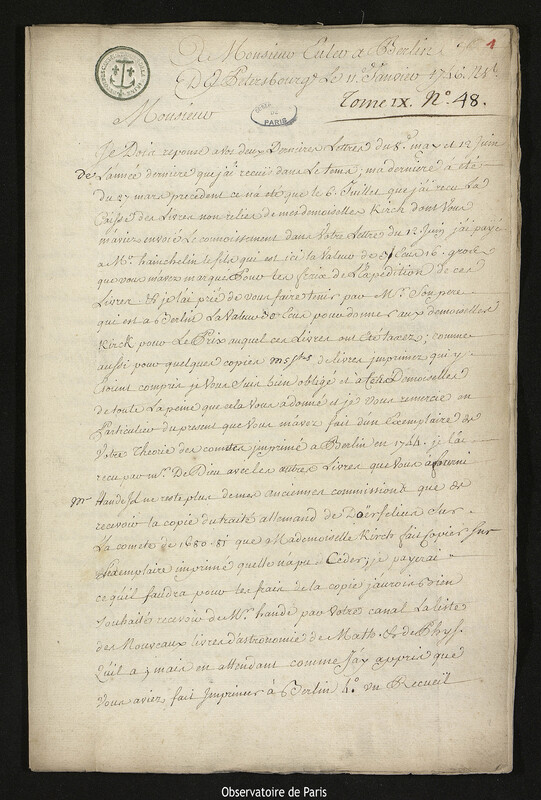 A Monsieur Euler a Berlin 1
De Petersbourg Le 11 Janvier 1746. N.st.
Tome IX. N.º 48.
Monsieur
PARIS
Je Dois reponse a vos deux Dernieres Lettres du 8. may et 12 Juin
de L'année derniere que j'ai recuës dans Le tems; ma derniere a eté
du 27 mars precedent ce n'a eté que le 6. Juillet que j'ai recu La
Caisse des Livres non reliés de mesdemoiselles Kirch dont Vous
m'aviez envoié Le connoissement dans Votre Lettre du 12. Juin j'ai payé
a Mr. hainchelin le fils qui est ici la Valeur de Ecus 16. gros
que vous m'avez marqué pour les frix de L'expedition de ces
Livres & je l'ai prié de vous faire tenir par Mr. Son pere
qui est a Berlin La Valeur de Ecus pour donner aux demoiselles
Kirck pour Le Prix auquel ces Livres ont eté taxez; comme
aussi pour quelques copies msstes de livres imprimez qui y
etoient compris je Vous Suis bien obligé et a ces Demoiselles
de toute La peine que cela Vous a donné et je vous remercie en
Particulier du present que Vous m'avez fait d'un Exemplaire de
Votre Theorie des cometes imprimé a Berlin en 1744. je l'ai
recu par mr. De Dieu avec les autres Livres que Vous a fourni
mr Haude Il ne reste plus de mes anciennes commissions que de
recevoir la copie du traité allemand de Dörfelius Sur
La comete de 1680-81 que Mademoiselle Kirch fait copier sur
L'exemplaire imprimé quelle n'a pu Ceder; je payerai
ce qu'il faudra pour les frais de la copie j'aurois bien
souhaité recevoir de Mr haude par Votre canal La liste
des Nouveaux livres d'astronomie de Math. & de Phys.
qu'il a; mais en attendant comme J'ay appris que
Vous aviez fait Imprimer à Berlin 4.º un Recueil
Observatoire de Paris